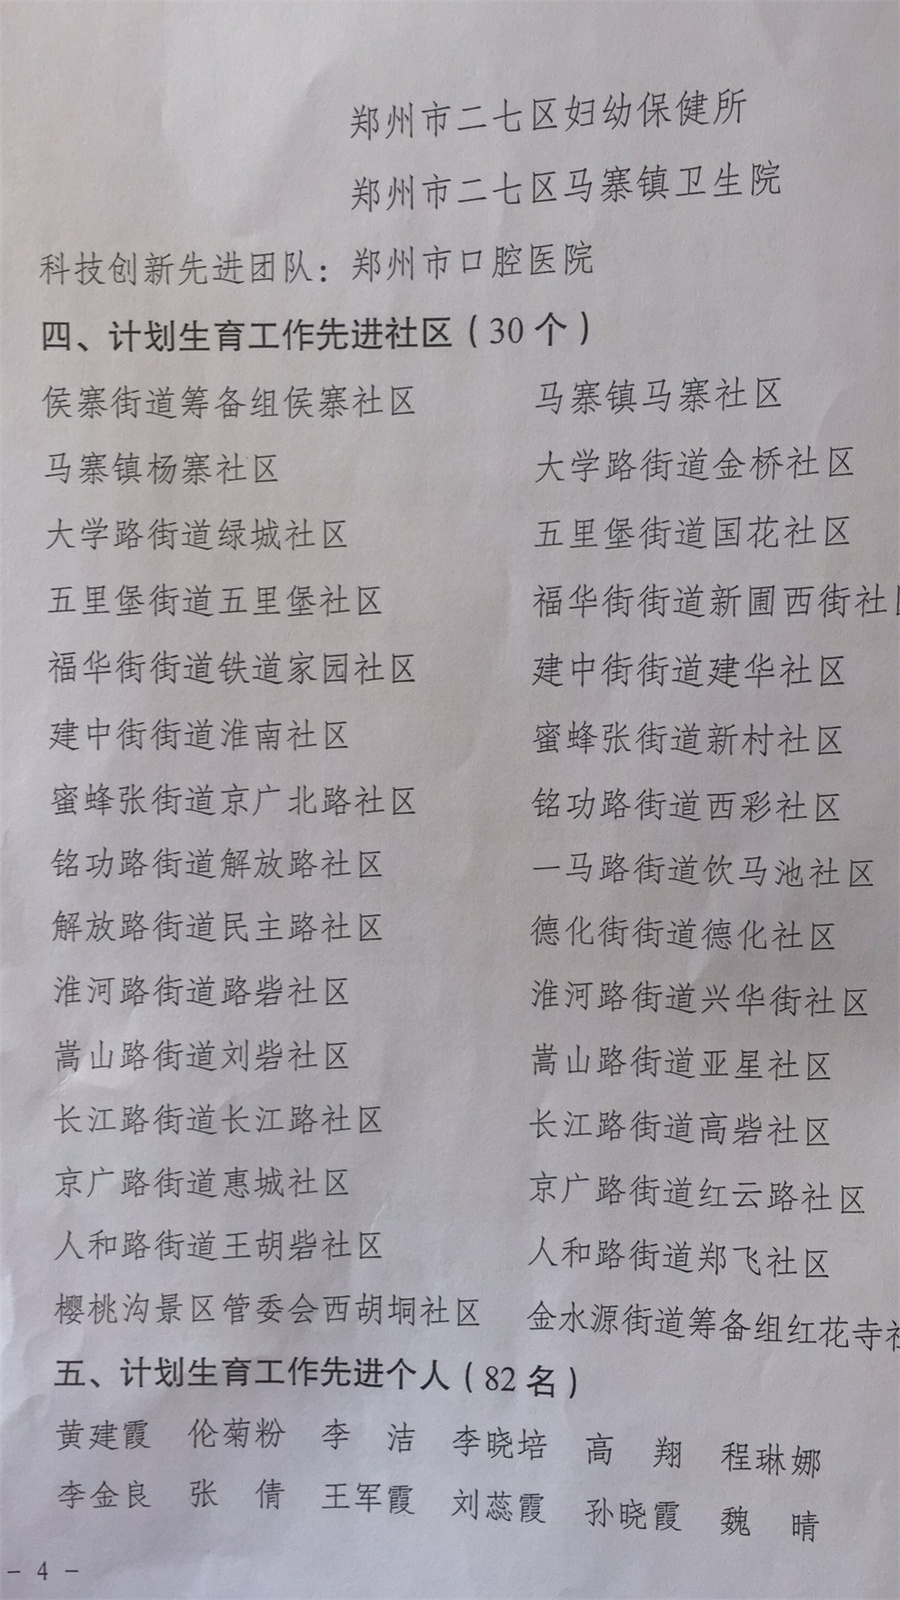 郑州市二七区妇幼保健所
郑州市二七区马寨镇卫生院
科技创新先进团队：郑州市口腔医院
四、计划生育工作先进社区（30个）
侯寨街道筹备组侯寨社区 马寨镇马寨社区
马寨镇杨寨社区 大学路街道金桥社区
大学路街道绿城社区 五里堡街道国花社区
五里堡街道五里堡社区 福华街街道新圃西街社区
福华街街道铁道家园社区 建中街街道建华社区
建中街街道淮南社区 蜜蜂张街道新村社区
蜜蜂张街道京广北路社区 铭功路街道西彩社区
铭功路街道解放路社区 一马路街道饮马池社区
解放路街道民主路社区 德化街街道德化社区
淮河路街道路砦社区 淮河路街道兴华街社区
嵩山路街道刘砦社区 嵩山路街道亚星社区
长江路街道长江路社区 长江路街道高砦社区
京广路街道惠城社区 京广路街道红云路社区
人和路街道王胡砦社区 人和路街道郑飞社区
樱桃沟景区管委会西胡垌社区 金水源街道筹备组红花寺社
五、计划生育工作先进个人（82名）
黄建霞 伦菊粉 李 洁 李晓培 高 翔 程琳娜
李金良 张 倩 王军霞 刘蕊霞 孙晓霞 魏 晴
- 4 -